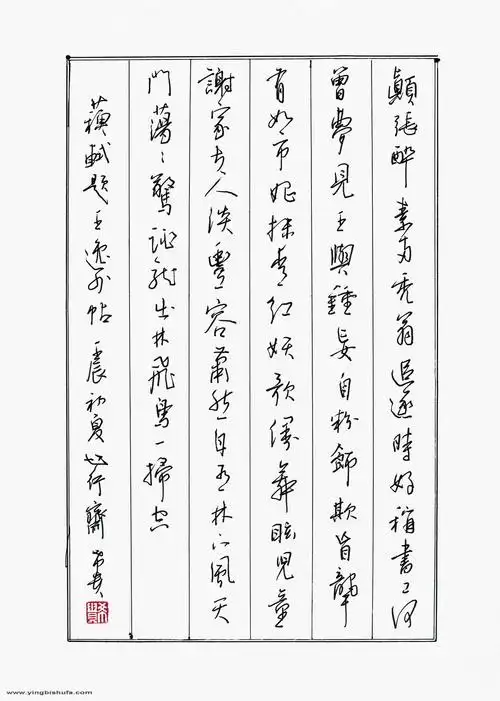 顛張醉素兩禿翁追逐時好稱書工何
曾夢見王與鍾妄自粉飾欺盲聾
有如市娼抹青紅妖歌嫚舞眩兒童
謝家夫人淡豐容蕭然自有林下風天
門蕩〻驚跳龍出林飛鳥一掃空
蘇軾題王逸少帖 壬辰初夏 齋
www.yingbishufa.com